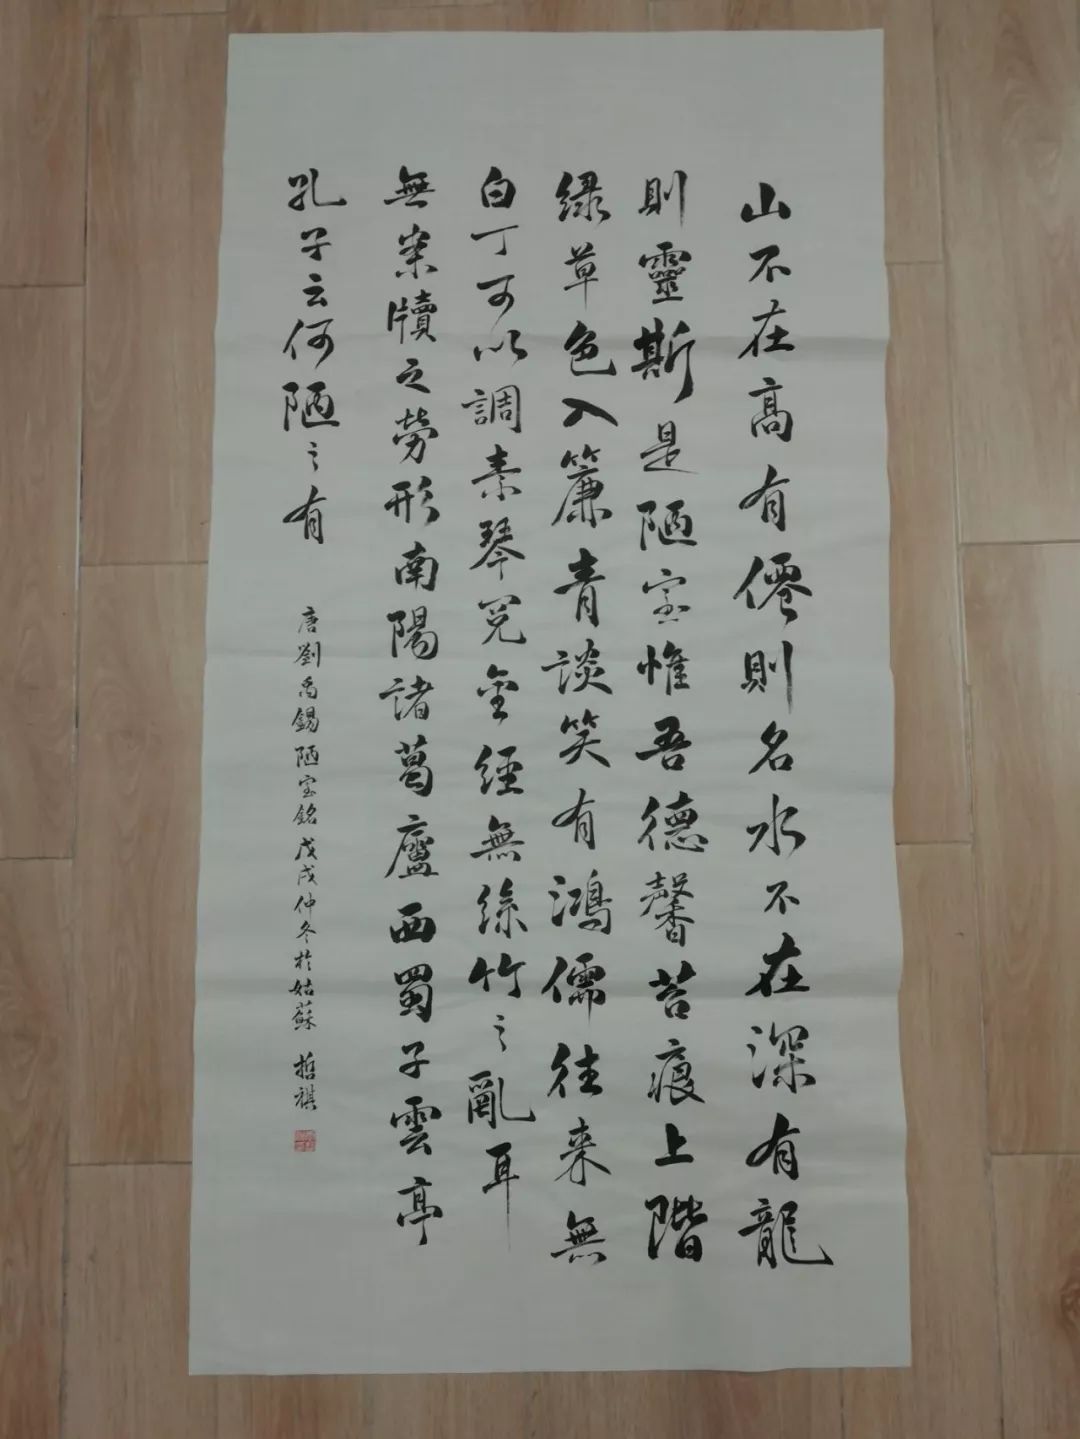 山不在高有僊則名水不在深有龍
則靈斯是陋室惟吾德馨苔痕上階
緑草色入簾青談笑有鴻儒往来無
白丁可以調素琴閱金經無絲竹之亂耳
無案牘之勞形南陽諸葛廬西蜀子雲亭
孔子云何陋之有
唐劉禹錫陋室銘戊戌仲冬於姑蘇 哲祺